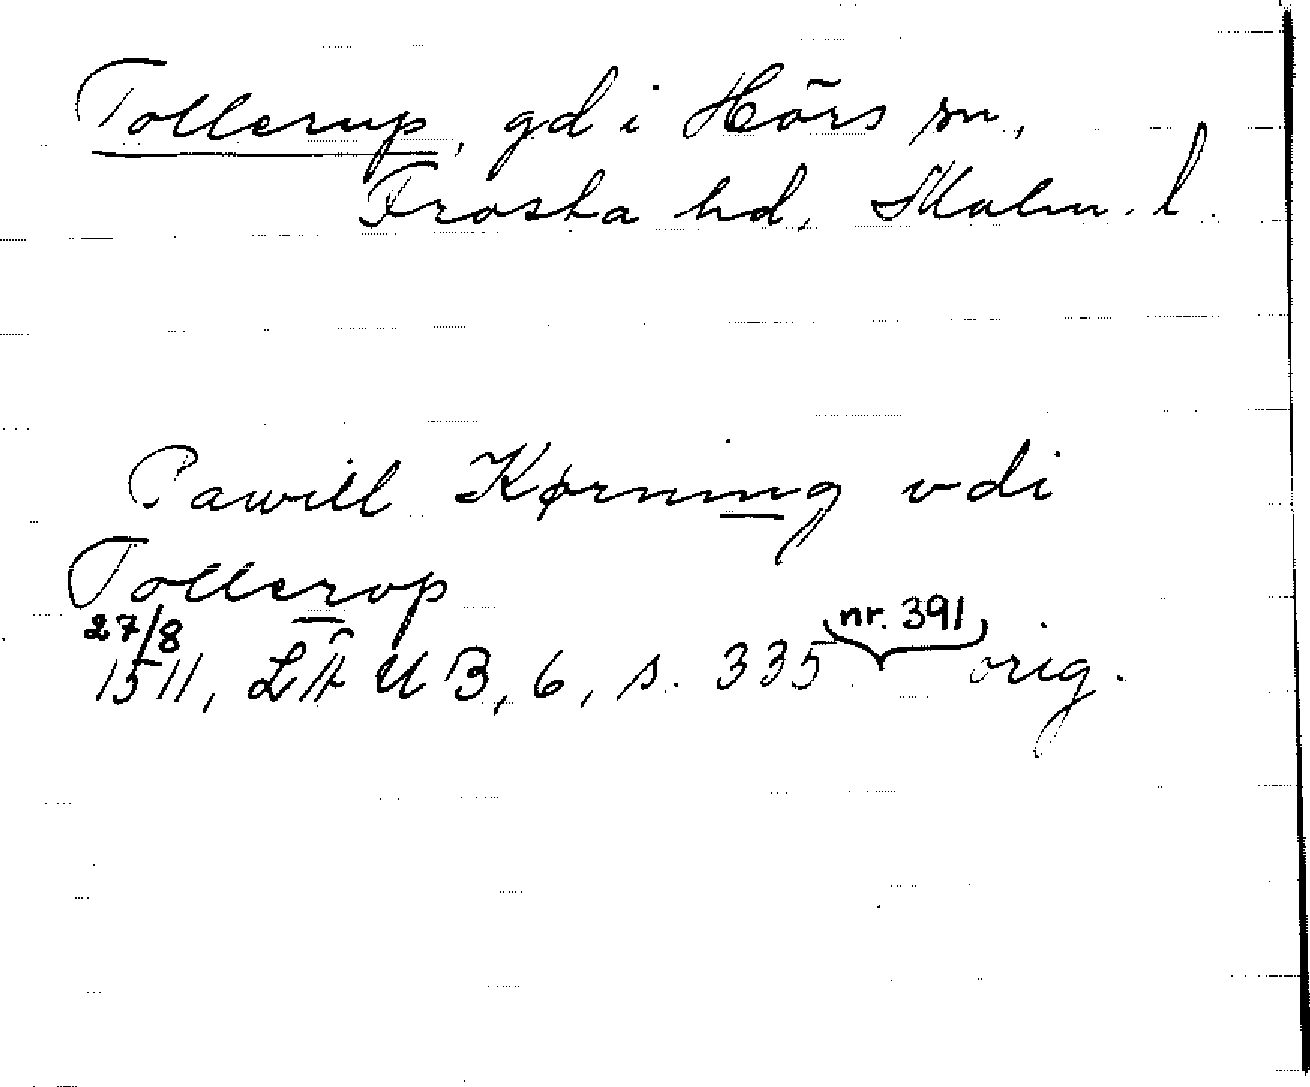 Tollerup, gd i Hörs sn,
Frosta hd, Malm. l.
Pawill Kørning vdi
Tollerop
27/8 nr. 391
1511, LÄUB, 6, s. 335 orig.